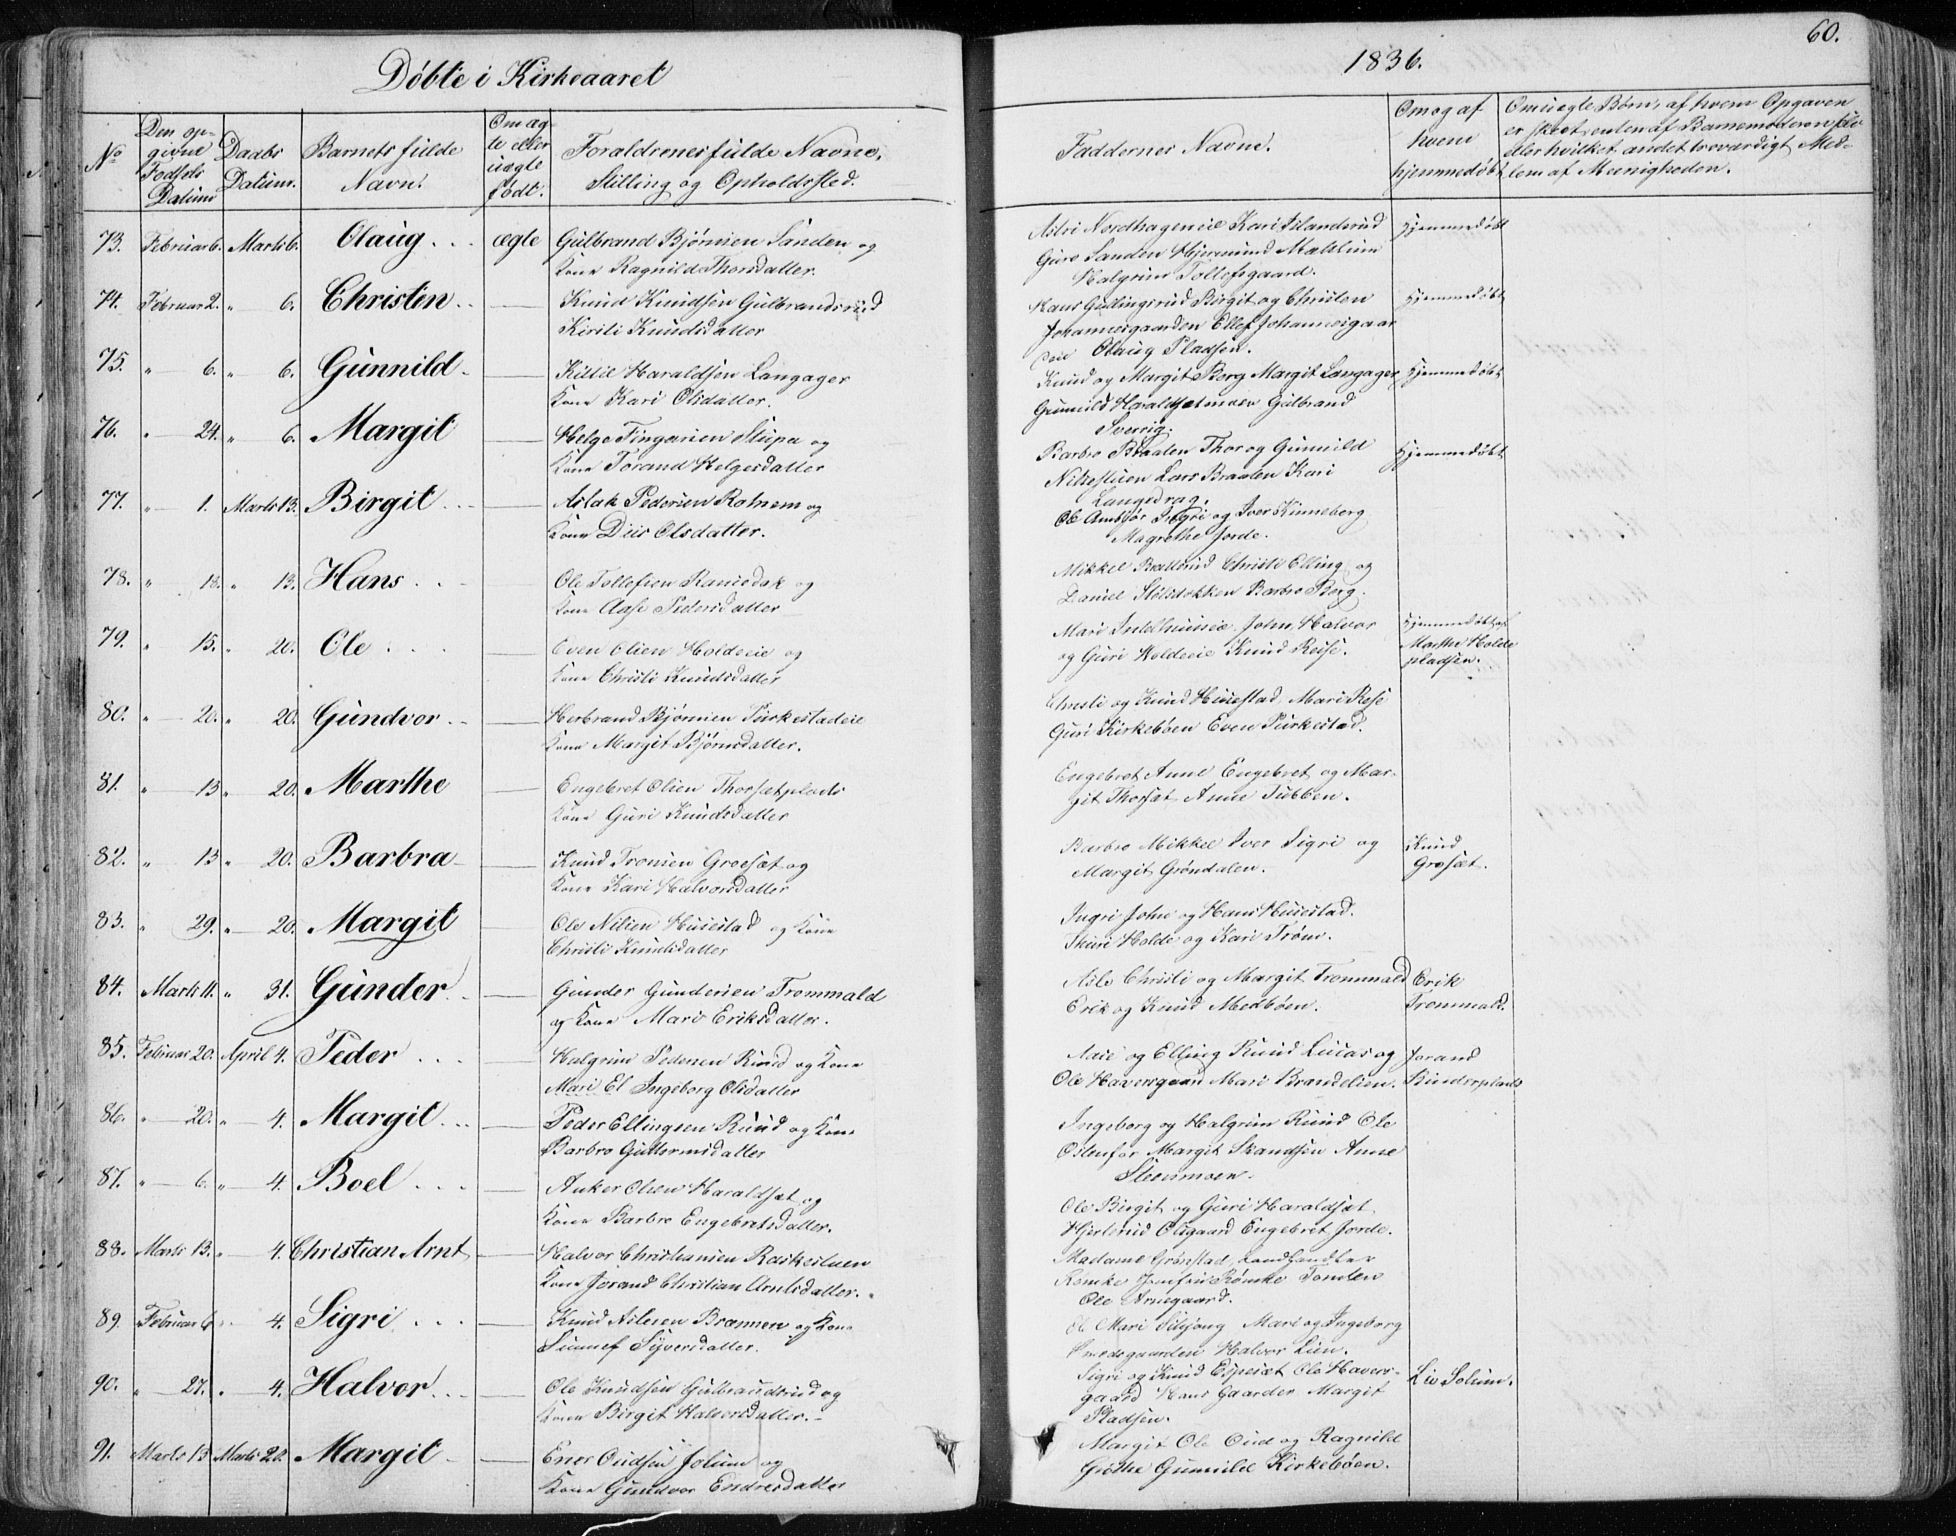 60.
Døbte i Kirkeaaret
1836.
No
Den op-
givne
Fødsels
Datum
Daabs
Datum.
Barnets fulde
Navn.
Om æg-
te eller
uægte
født.
Forældrenes fulde Navne,
Stilling og Opholdssted.
Faddernes Navne.
Om og af
hvem
hjemmedøbt
Om uægte Børn, af hvem Opgaven
er skeet, enten af Barnemoderen selv
eller hvilket andet troværdigt Med-
lem af Menigheden.
73. Februar 6. Marts 6. Olaug ægte Gulbrand Bjørnsen Sanden og
Kone Ragnild Thorsdatter.
Guro Sanden Hjermund Mæhlum
Halgrim Tollefsgaard.
Hjemmedøbt
74. Februar 2. " 6. Christen Knud Knudsen Gulbrandsrud
Kirsti Knudsdatter
Hans Gullingsrud Birgit og Christen
Johannesgaarden Ellef Johannesgaar
den Olaug Pladsen.
Hjemmedøbt
75. " 6. " 6. Gunnild Kittil Haraldsen Langager
Kone Kari Olsdatter.
Knud og Margit Berg Margit Langager
Gunnild Haraldsetmoen Gulbrand
Sverrig.
Hjemmedøbt
76. " 24. " 6. Margit Helge Fingarsen Stupa og
Kone Torand Helgesdatter
Barbro Braaten Thor og Gunnild
Nilsestuen Lars Braaten Kari
Langedrag.
Hjemmedøbt
77. " 1. Marts 13. Birgit Aslak Pedersen Rotnem og
Kone Olsdatter.
Ole Ambjør Ingri og Iver Kinneberg
Magrethe Jorde.
78. " 13. " 13. Hans Ole Tollefsen og
Kone Aase Pedersdatter
Mikkel Christi Elling og
Daniel Barbro Berg.
79. " 15. " 20. Ole Even Olsen Holdeeie og
Kone Christi Knudsdatter
Mari John, Halvor
og Guri Holdeeie Knud Reise.
Hjemmedøbt af
Marthe Holde
pladsen.
80. " 20. " 20. Gundvor Herbrand Bjørnsen Purkestadeie
Kone Margit Bjørnsdatter.
Christi og Knud Husestad, Mari Rese
Guri Kirkebøen Even Purkestad.
81. " 13 " 20. Marthe Engebret Olsen Thorsætplads
Kone Guri Knudsdatter
Engebret Anne Engebret og Mar-
git Thorsæt Anne Tubben.
82. " 13 " 20. Barbra Knud Tronsen Groesæt og
Kone Kari Halvorsdatter
Barbro Mikkel Iver Sigri og
Margit Grøndalen.
Knud
Grosæt.
83. " 29. " 20. Margit Ole Nilsen Husestad og Kone
Christi Knudsdatter
Ingri John og Hans Husestad.
Thuri Holde og Kari Trøim.
84. Marts 11. " 31. Gunder Gunder Gundersen Trommald
og Kone Mari Eriksdatter.
Asle Christi og Margit Trommald
Erik og Knud Medbøen.
Erik
Trommald.
85. Februar 20. April 4. Peder Halgrim Pedersen Ruud og Kone
Mari El Ingeborg Olsdatter
og Elling Ruud Lucas og
Ole Haversgaard Mari Brandelien.
Jorand
86. " 20. " 4. Margit Peder Ellingsen Ruud og Kone
Barbro Guttormsdatter
Ingeborg og Halgrim Ruud Ole
Østenfor Margit Skandsen Anne
Steensmoen.
87. " 6. " 4. Boel Anker Olsen Haraldsæt og
Kone Barbro Engebretsdatter.
Ole Birgit og Guri Haraldsæt
Olsgaard Engebret Jorde.
88. Marts 13. " 4. Christian Arnt Halvor Christiansen
Kone Jorand Christian Arntsdatter.
Madame Grønstad, Landhandler
Rømke Jomfru Rømke
Ole Arnegaard.
89. Februar 6 4. Sigri Knud Nilssen og Kone
Sunnef Syversdatter.
Ole Mari Mari og Ingeborg
Halvor Lien.
90. " 27. " 4. Halvor Ole Knudsen Gulbrandsrud og
Kone Birgit Halvorsdatter.
Sigri og Knud Espesæt Ole Havers-
gaard Hans Gaarder Margit
Pladsen.
Liv Solum.
91. Marts 13 Marts 20. Margit Ener Oudsen Jolum og
Kone Gundvor Endresdatter
Margit Ole Oud og Ragnild
Gøthe Gunnild Kirkebøen.